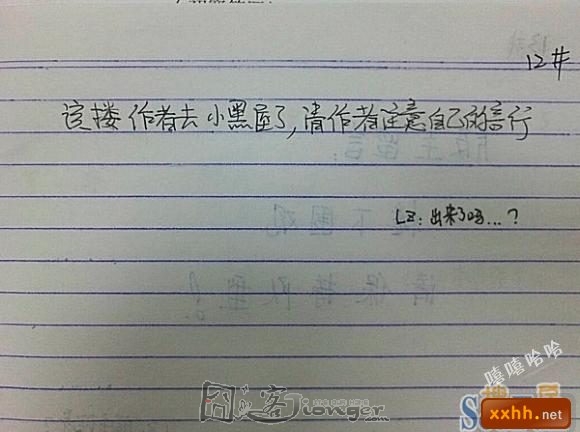 12#
该楼作者去小黑屋了,请作者注意自己的言行
LZ:出来了吗...?
嘻嘻哈哈
囧客
jionger.com
xxhh.net